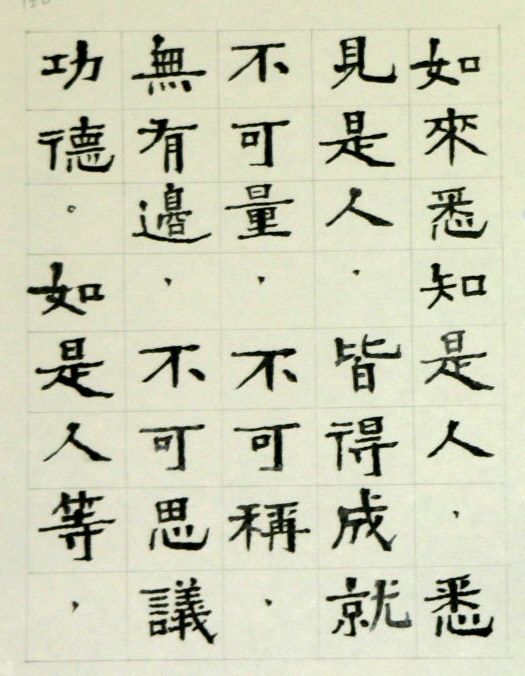 如來悉知是人，悉
見是人，皆得成就
不可量，不可稱，
無有邊，不可思議
功德。如是人等，